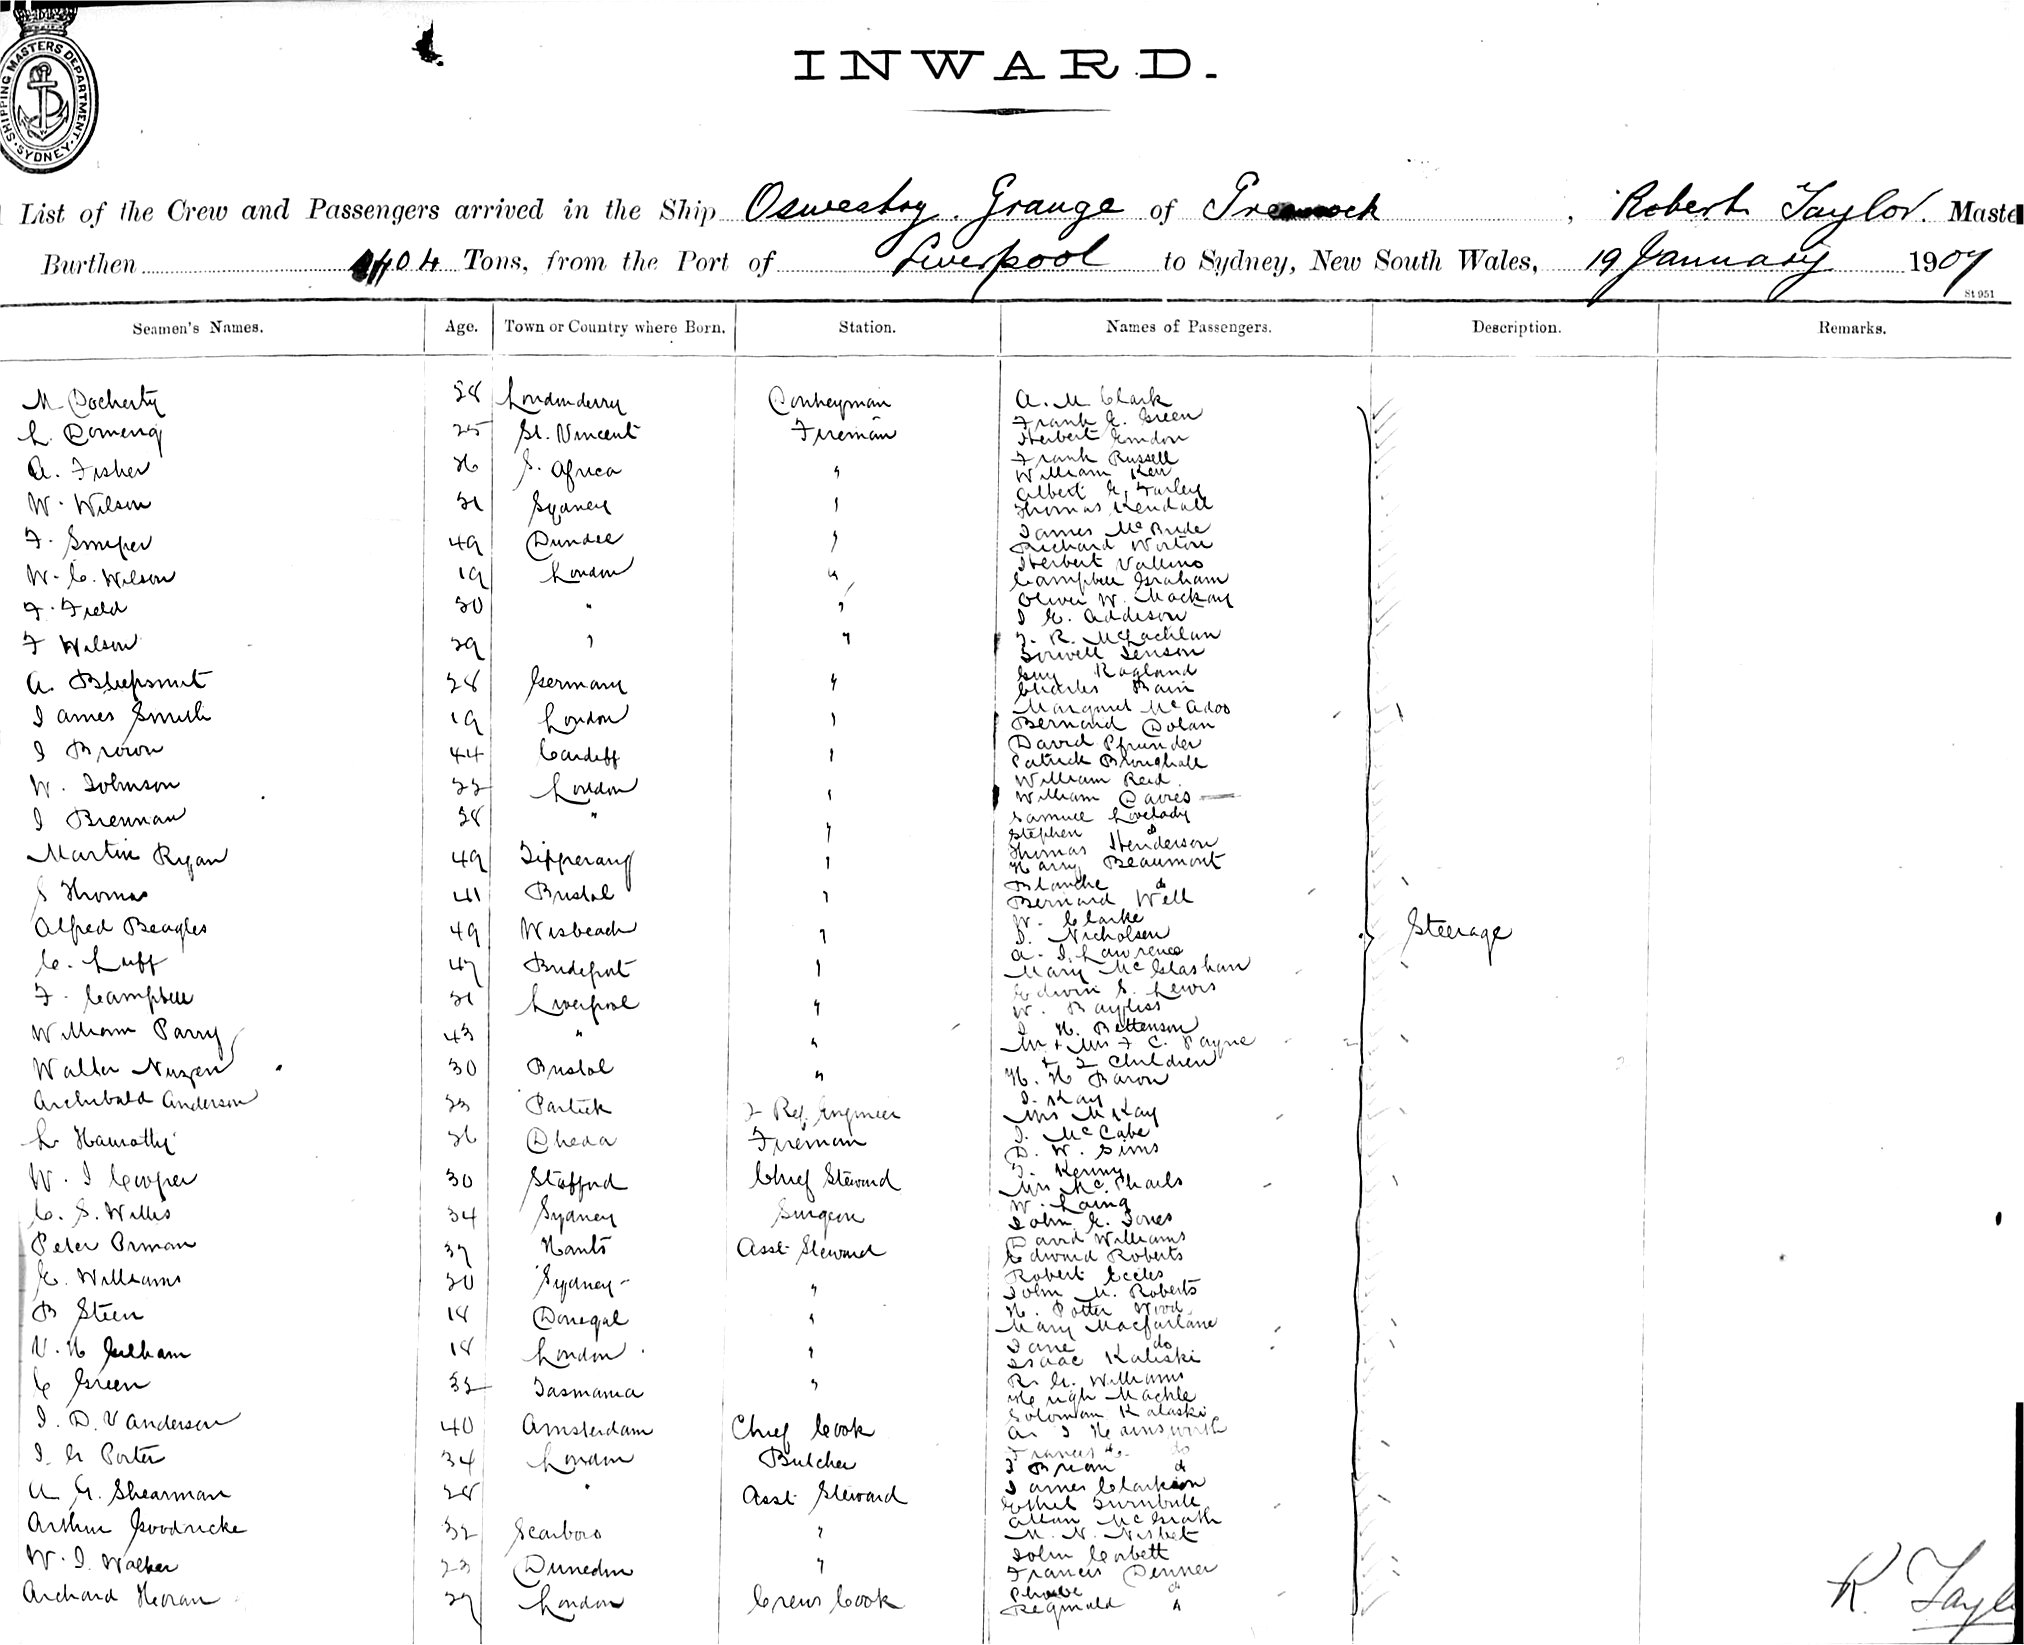 SHIPPING MASTERS DEPARTMENT. SYDNEY.
INWARD.
List of the Crew and Passengers arrived in the Ship Oswestry Grange of , Robert Taylor. Maste
Burthen 404 Tons, from the Port of Liverpool to Sydney, New South Wales, 19 January 1907
St 951
Seamen's Names. Age. Town or Country where Born. Station. Names of Passengers. Description. Remarks.
M Docherty 28 Londonderry Donkeyman
L. 25 St. Vincent Fireman
A. Fisher 26 S. Africa "
W. Wilson 21 Sydney "
F. 49 Dundee "
W. C. Wilson 19 London "
F. Field 20 " "
F Wilson 29 " "
A. 28 Germany "
James Smith 19 London "
J Brown 44 Cardiff "
W. Johnson 22 London "
J Brennan 28 " "
Martin Ryan 49 Tipperary "
S Thomas 41 Bristol "
Alfred Beagles 49 Wisbeach "
C. Luff 47 Bridport "
F. Campbell 21 Liverpool "
William Parry 43 " "
Walter 30 Bristol "
Archibald Anderson 23 Partick 2 Ref. Engineer
L 26 Fireman
W. J Cooper 30 Stafford Chief Steward
C. S. Willis 34 Sydney Surgeon
Peter Orman 37 Hants Asst Steward
E. Williams 20 Sydney "
B Steen 18 Donegal "
V. H Gillham 18 London "
C Green 32 Tasmania "
J. D. Vanderson 40 Amsterdam Chief Cook
J. G Porter 34 London Butcher
A G. Shearman 28 " Asst Steward
Arthur Goodricke 32 Scarboro "
W. J. Walker 23 Dunedin "
Archard Horan 27 London Crews Cook
A. M Clark
Frank E. Green
Herbert
Frank Russell
William Keir
Albert E. Farley
Thomas Kendall
James McBride
Richard Worton
Herbert
Campbell Graham
Oliver W. Mackay
J E. Addison
J. R. McLachlan
Guy Ragland
Charles Bain
Margaret McAdoo
Bernard Dolan
David Pfrunder
Patrick Broughall
William Reid
William Davies
Samuel Lovelady
Stephen do
Thomas Henderson
Harry Beaumont
Blanche do
Bernard Well
W. Clarke
J. Nicholsen
A. J. Lawrence
Mary McGlashan
Edwin S. Lewis
W. Bayliss
J H. Bettenson
Mr & Mrs F C. Payne
& 2 Children
H. H Baron
J. Kay
Mrs M Kay
J. McCabe
D. W. Sims
J. Kenny
Mrs McPhails
W. Laing
John E. Jones
David Williams
Edward Roberts
Robert Eccles
John M. Roberts
H. Potter Wood
Mary Macfarlane
Jane do
Isaac Kaliski
R. G. Williams
Hugh Mackle
Solomon Kalaski
A. J Hainsworth
Frances do
J Brian do
James Clarkson
Ethel Turnbull
Allan McGrath
M. N. Nisbet
John Corbett
Francis Denner
Phoebe do
Reginald
Steerage
R. Tayl